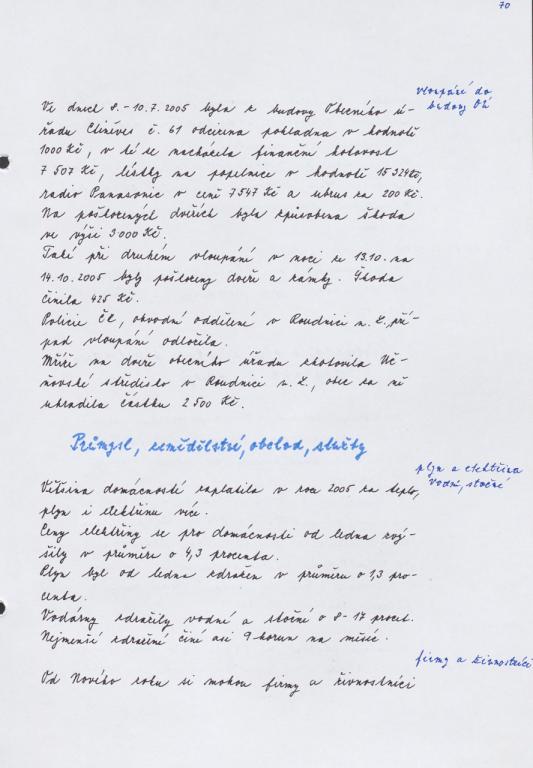 70
vloupání do
budovy OÚ
Ve dnech 8.-10.7.2005 byla z budovy Obecního ú-
řadu Ctiněves č. 61 odcizena pokladna v hodnotě
1000 Kč, v té se nacházela finanční hotovost
7 507 Kč, lístky na popelnice v hodnotě 15 324 Kč,
radio Panasonic v ceně 7547 Kč a ubrus za 200 Kč.
Na poškozených dveřích byla způsobena škoda
ve výši 3 000 Kč.
Také při druhém vloupání v noci ze 13.10. na
14.10.2005 byly poškozeny dveře a zámky. Škoda
činila 425 Kč.
Policie ČR, obvodní oddělení v Roudnici n. L., pří-
pad vloupání odložila.
Mříže na dveře obecního úřadu zhotovila Uč-
ňovské středisko v Roudnici n. L., obec za ně
uhradila částku 2 500 Kč.
Průmysl, zemědělství, obchod, služby
plyn a elektřina
vodné, stočné
Většina domácností zaplatila v roce 2005 za teplo,
plyn i elektřinu více.
Ceny elektřiny se pro domácnosti od ledna zvý-
šily v průměru o 4,3 procenta.
Plyn byl od ledna zdražen v průměru o 1,3 pro-
centa.
Vodárny zdražily vodné a stočné o 8-17 procent.
Nejmenší zdražení činí asi 9 korun na měsíc.
firmy a živnostníci
Od Nového roku si mohou firmy a živnostníci